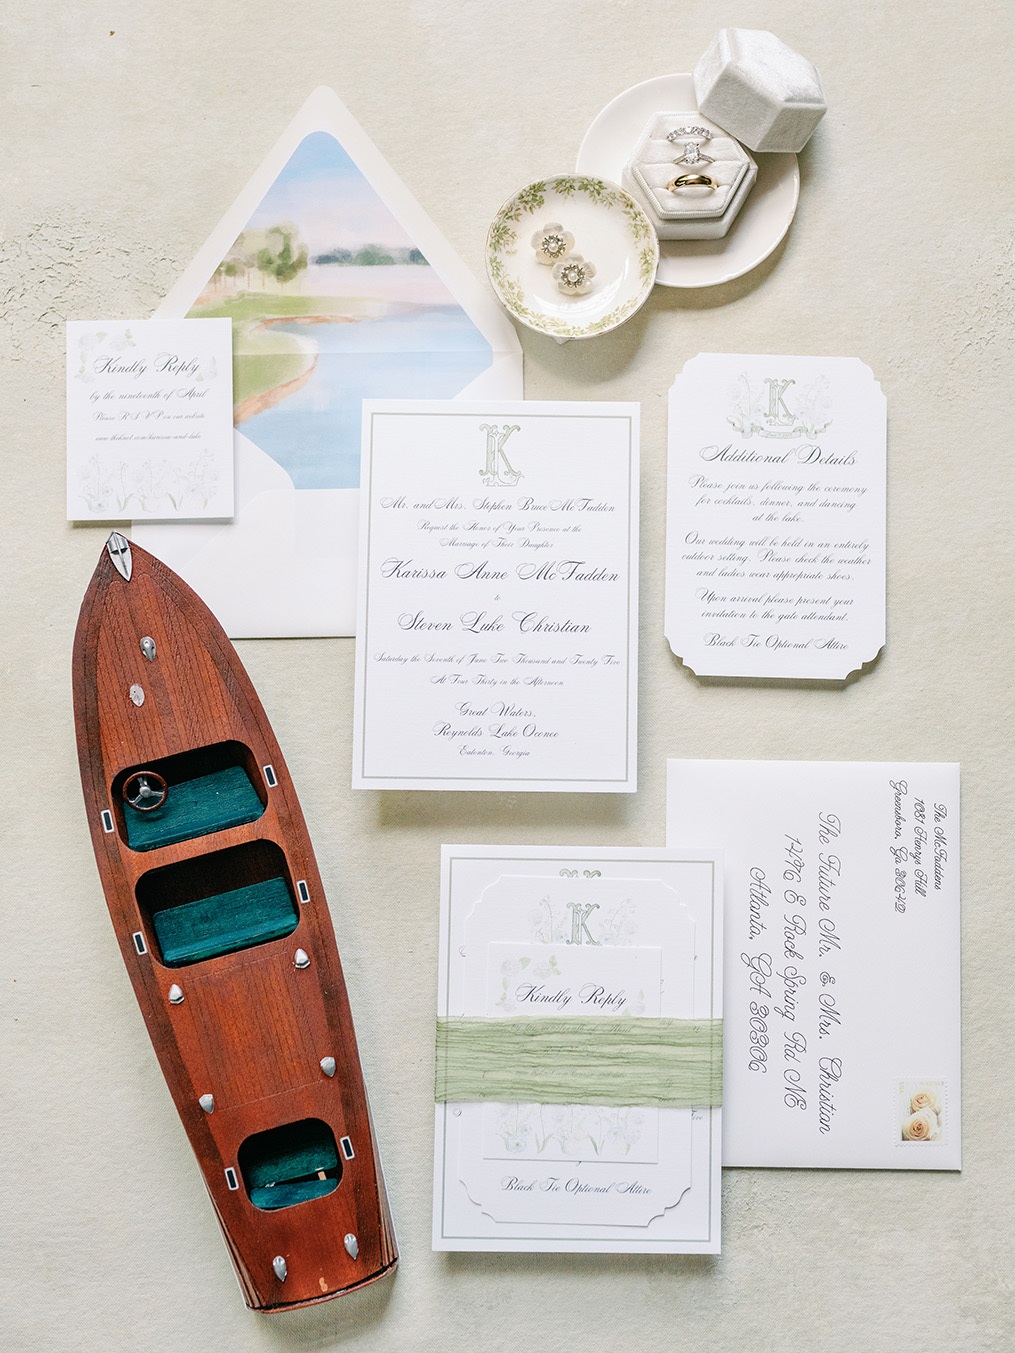 Kindly Reply
by the nineteenth of April
Please R S V P on our website
www.theknot.com/karissa-and-luke
K
Mr. and Mrs. Stephen Bruce McFadden
Request the Honor of Your Presence at the
Marriage of Their Daughter
Karissa Anne McFadden
to
Steven Luke Christian
Saturday the Seventh of June Two Thousand and Twenty Five
At Four Thirty in the Afternoon
Great Waters,
Reynolds Lake Oconee
Eatonton, Georgia
K
Additional Details
Please join us following the ceremony
for cocktails, dinner, and dancing
at the lake.
Our wedding will be held in an entirely
outdoor setting. Please check the weather
and ladies wear appropriate shoes.
Upon arrival please present your
invitation to the gate attendant.
Black Tie Optional Attire
K
Kindly Reply
Black Tie Optional Attire
The McFaddens
1081 Henrys Hill
Greensboro, Ga 30642
The Future Mr. & Mrs. Christian
E Rock Spring Rd NE
Atlanta, GA 30306